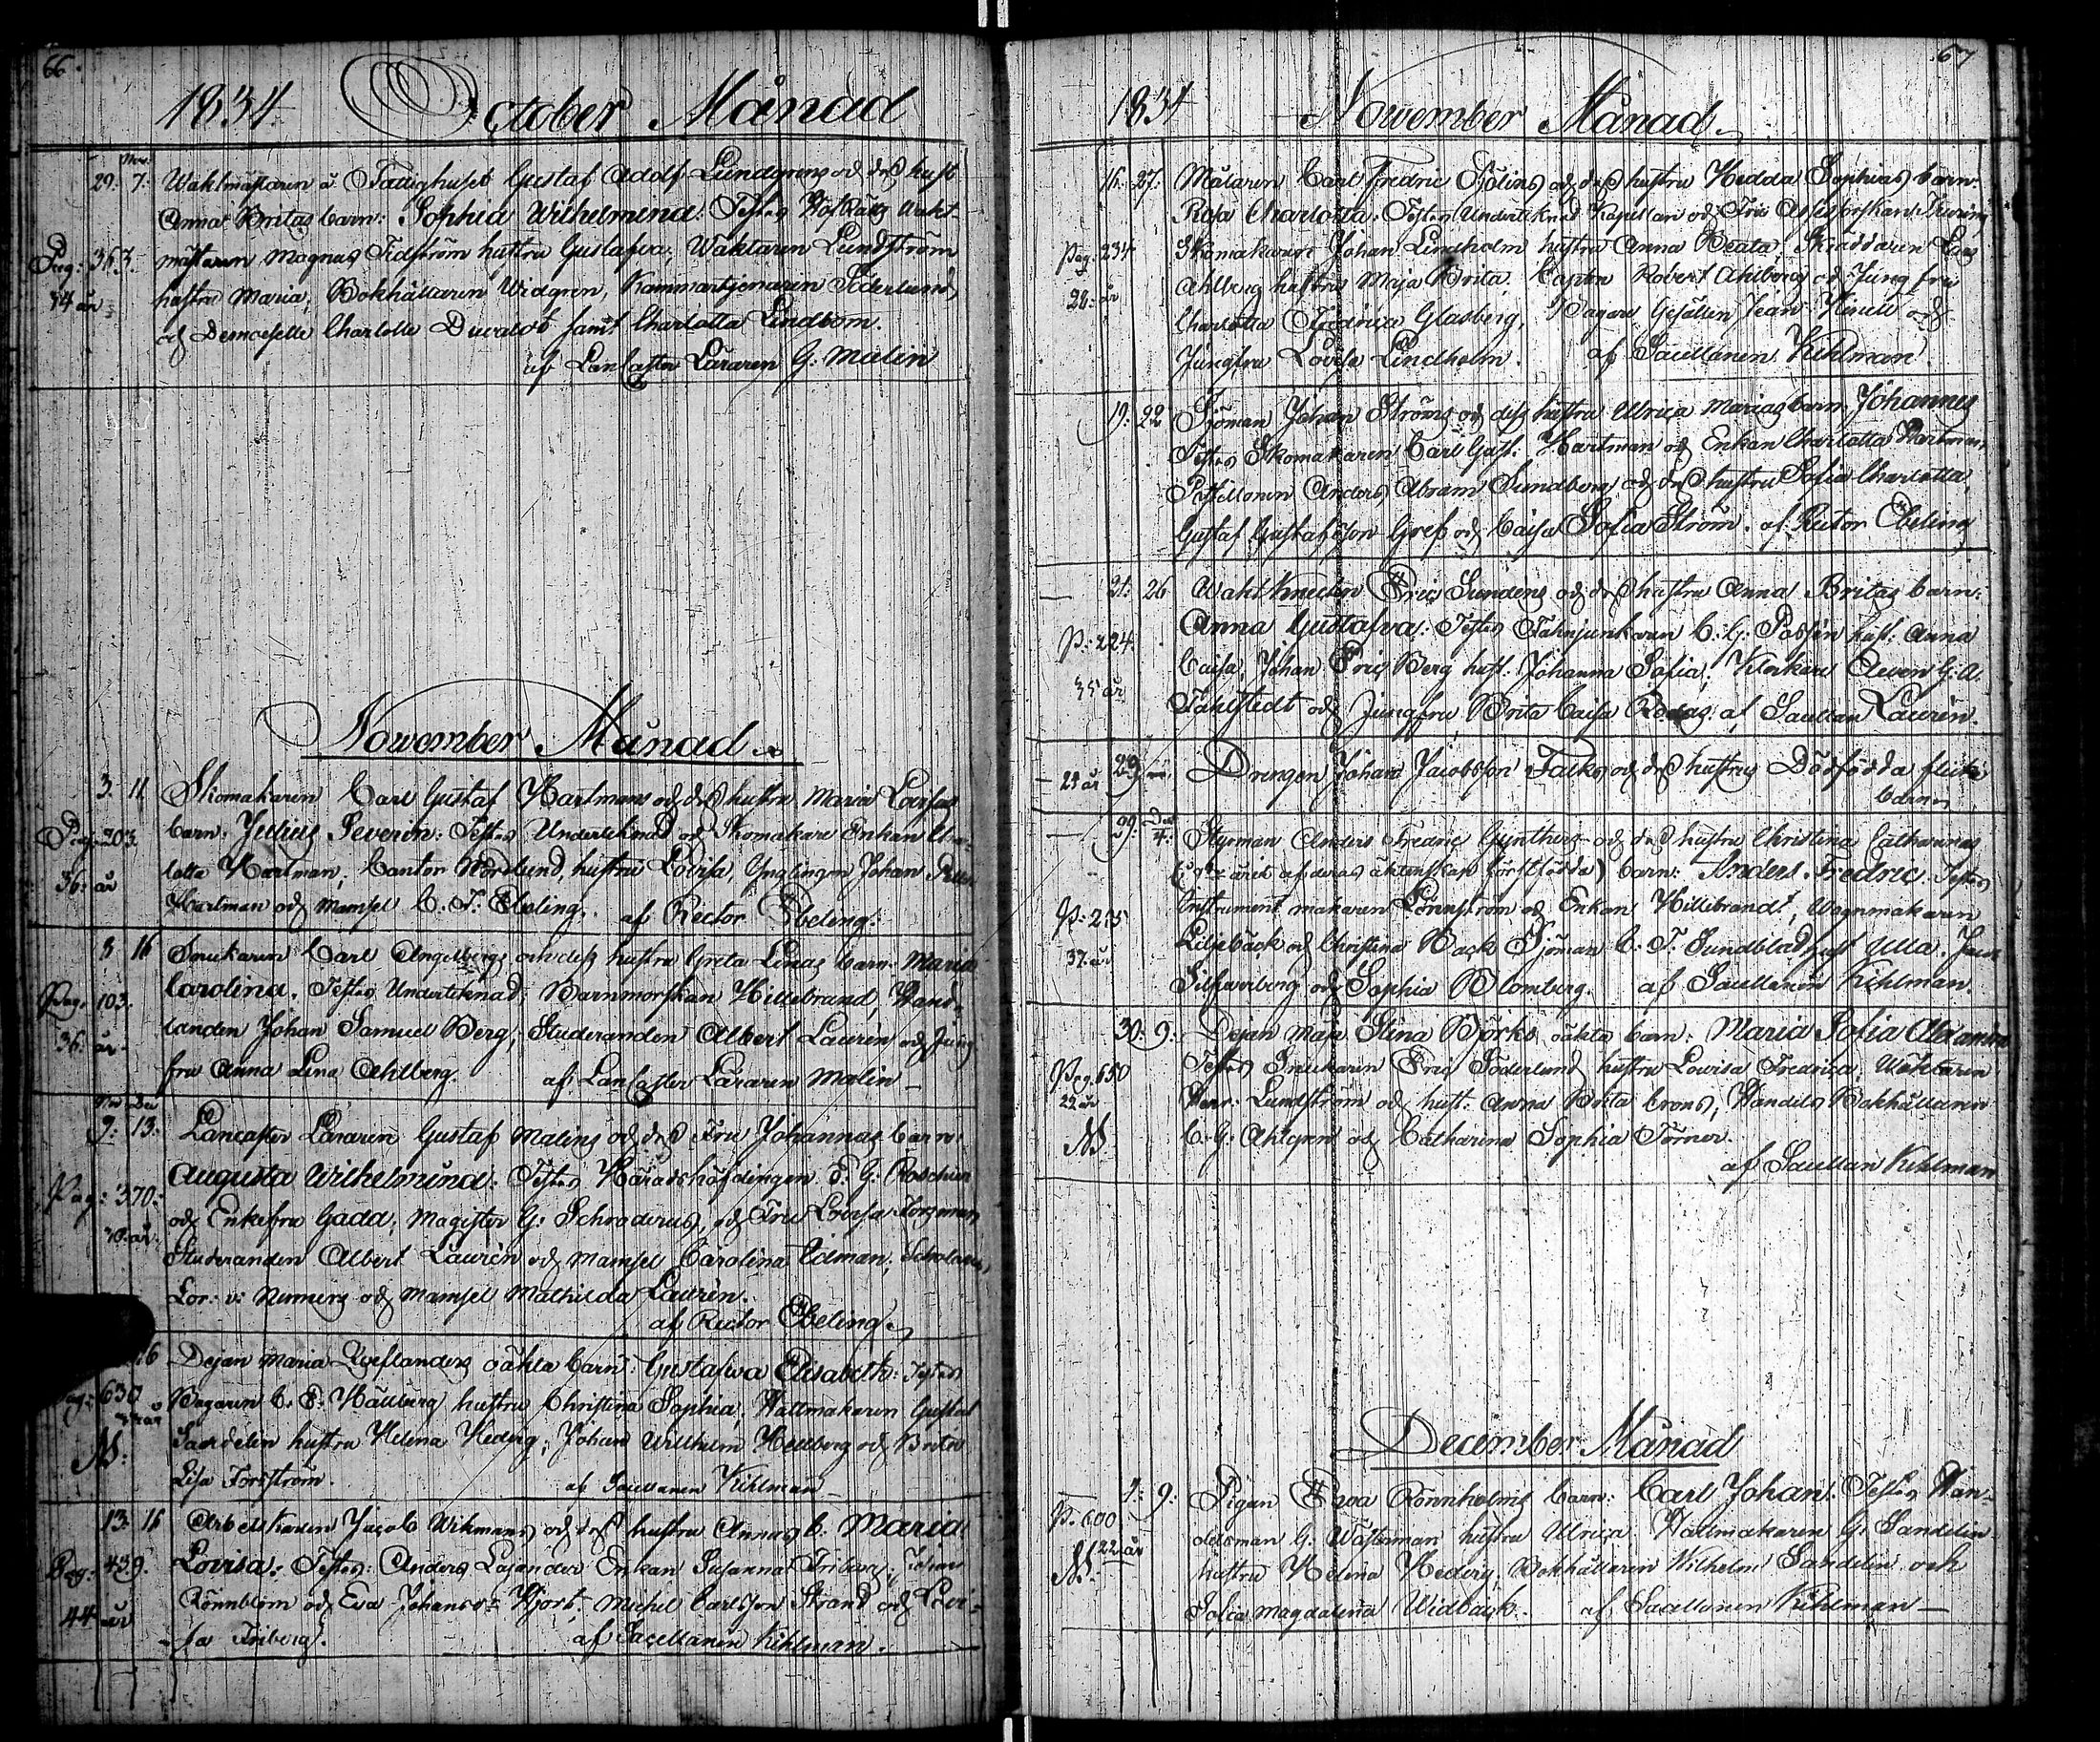 66.
1834. October Månad
Nov.
29. 7. Waktmästaren å Fattighuset Gustaf Adolf Lundgrens och dess hust
Anna Britas barn: Sophia Wilhelmina: Testes Wakt-
Pag: 363. mästaren Magnus Tidström hustru Gustafva; Waktaren Lundström
34 år hustru Maria; Bokhållaren Widgren, Kammartjenaren Söderlund,
och Demoiselle Charlotte samt Charlotta Lindbom.
af Lancaster Läraren G: Malin
November Månad
3. 11 Skomakaren Carl Gustaf Hartmans och dess hustru Maria Lovisas
Pag: 203. barn: Julius Severin: Testes Undertecknad och Skomakare Enkan Char-
36 år lotta Hartman; Cantor Nordlund, hustru Lovisa, Ynglingen Johan
Hartman och Mamsel C. F. Ebeling. af Rector Ebeling.
8 16 Snickaren Carl Engelbergs och dess hustru Greta Lenas barn: Maria
Pag: 103. Carolina. Testes Undertecknad; Barnmorskan Hillebrand, Hand-
36 år landen Johan Samuel Berg; Studeranden Albert Laurén och Jung-
fru Anna Lena Ahlberg. af Lancaster Läraren Malin
Nov Dec
9. 13. Lancaster Läraren Gustaf Malins och dess Fru Johannas barn:
Pag: 370: Augusta Wilhelmina: Testes Häradshöfdingen E. G. Roschier
och Enkefru Gadd; Magister G: Schroderus, och Fru Lovisa
Studeranden Albert Laurén och Mamsel Carolina Idman;
och Mamsel Mathilda Laurén.
af Rector Ebeling.
16 Dejan Maria oäkta barn: Gustafva Elisabeth: Testes
Pag: 630 Bagaren C. E. Hällberg hustru Christina Sophia, Hattmakaren Gustaf
M: Sandelin hustru Helena Hedvig; Johan Wilhelm Hellberg och Brita
Lisa Forsström. af Sacellanen Kihlman
13. 15 Arbetskarlen Jacob Wikmans och dess hustru Annas b. Maria
Pag: 439. Lovisa: Testes: Anders Enkan Susanna Friberg; Johan
44 år Rönnblom och Eva Johansd: Hjort; Michel Carlsson Strand och Lovi-
sa Friberg. af Sacellanen Kihlman.
67
1834 November Månad
16. 27. Målaren Carl Fredric Sjölins och dess hustru Hedda Sophias barn:
Rosa Charlotta: Testes Undertecknad Kapellan och Fru
Pag: 234 Skomakaren Johan Lindholm hustru Anna Beata; Skräddaren
28 år Ahlberg hustru Maja Brita. Capten Robert Ahlberg och Jungfru
Charlotta Fredrica Glasberg, Bagare Gesällen Jean och
Jungfru Lovisa Lindholm. af Sacellanen Kihlman.
19. 22 Sjöman Johan Ströms och dess hustru Ulrica Marias barn: Johannes
Testes Skomakaren Carl Gust: Hartman och Enkan Charlotta Hartman,
Anders Abram Sundberg och dess hustru Sofia Charlotta,
Gustaf Gustafsson Gref och Caisa Sofia Ström. af Rector Ebeling
21. 26 Wakt Knechten Eric Sundens och dess hustru Anna Britas barn:
P: 224. Anna Gustafva: Testes Fahnjunkaren C. G. hust: Anna
35 år Caisa, Johan Eric Berg hust: Johanna Sofia; Klockare G. A.
Fahlstedt och Jungfru Brita Caisa af Sacellan Laurén.
24 år 29 Drengen Johan Jacobsson Falks och dess hustrus Dödfödda flicke
barn
29. 4. Styrman Anders Fredric Gynthers och dess hustru Christina Catharinas
förstfödda) barn: Anders Fredric. Testes
P: 215 Instrument makaren Lönnström och Enkan Hillebrand, Wagnmakaren
37 år Liljebäck och Christina Back Sjöman C. F. Sundblad hust Ulla.
Silfverberg och Sophia Blomberg. af Sacellanen Kihlman.
30. 9. Dejan Maja Stina Björks oäkta barn: Maria Sofia
Pag. 650 Testes Snickaren Eric Söderlund hustru Lovisa Fredrica, Waktaren
22 år Lundström och hust: Anna Brita Handels Bokhållaren
M. C. G. Ahlgren och Catharina Sophia Törner.
af Sacellan Kihlman
December Månad
9: Pigan Eva Rönnholms barn: Carl Johan: Testes Han-
P. 600 delsman G. Wästerman hustru Ulrica. Hattmakaren G. Sandelin
22 år hustru Helena Hedvig; Bokhållaren Wilhelm Sandelin och
M. Sofia Magdalena Widbäck. af Sacellanen Kihlman